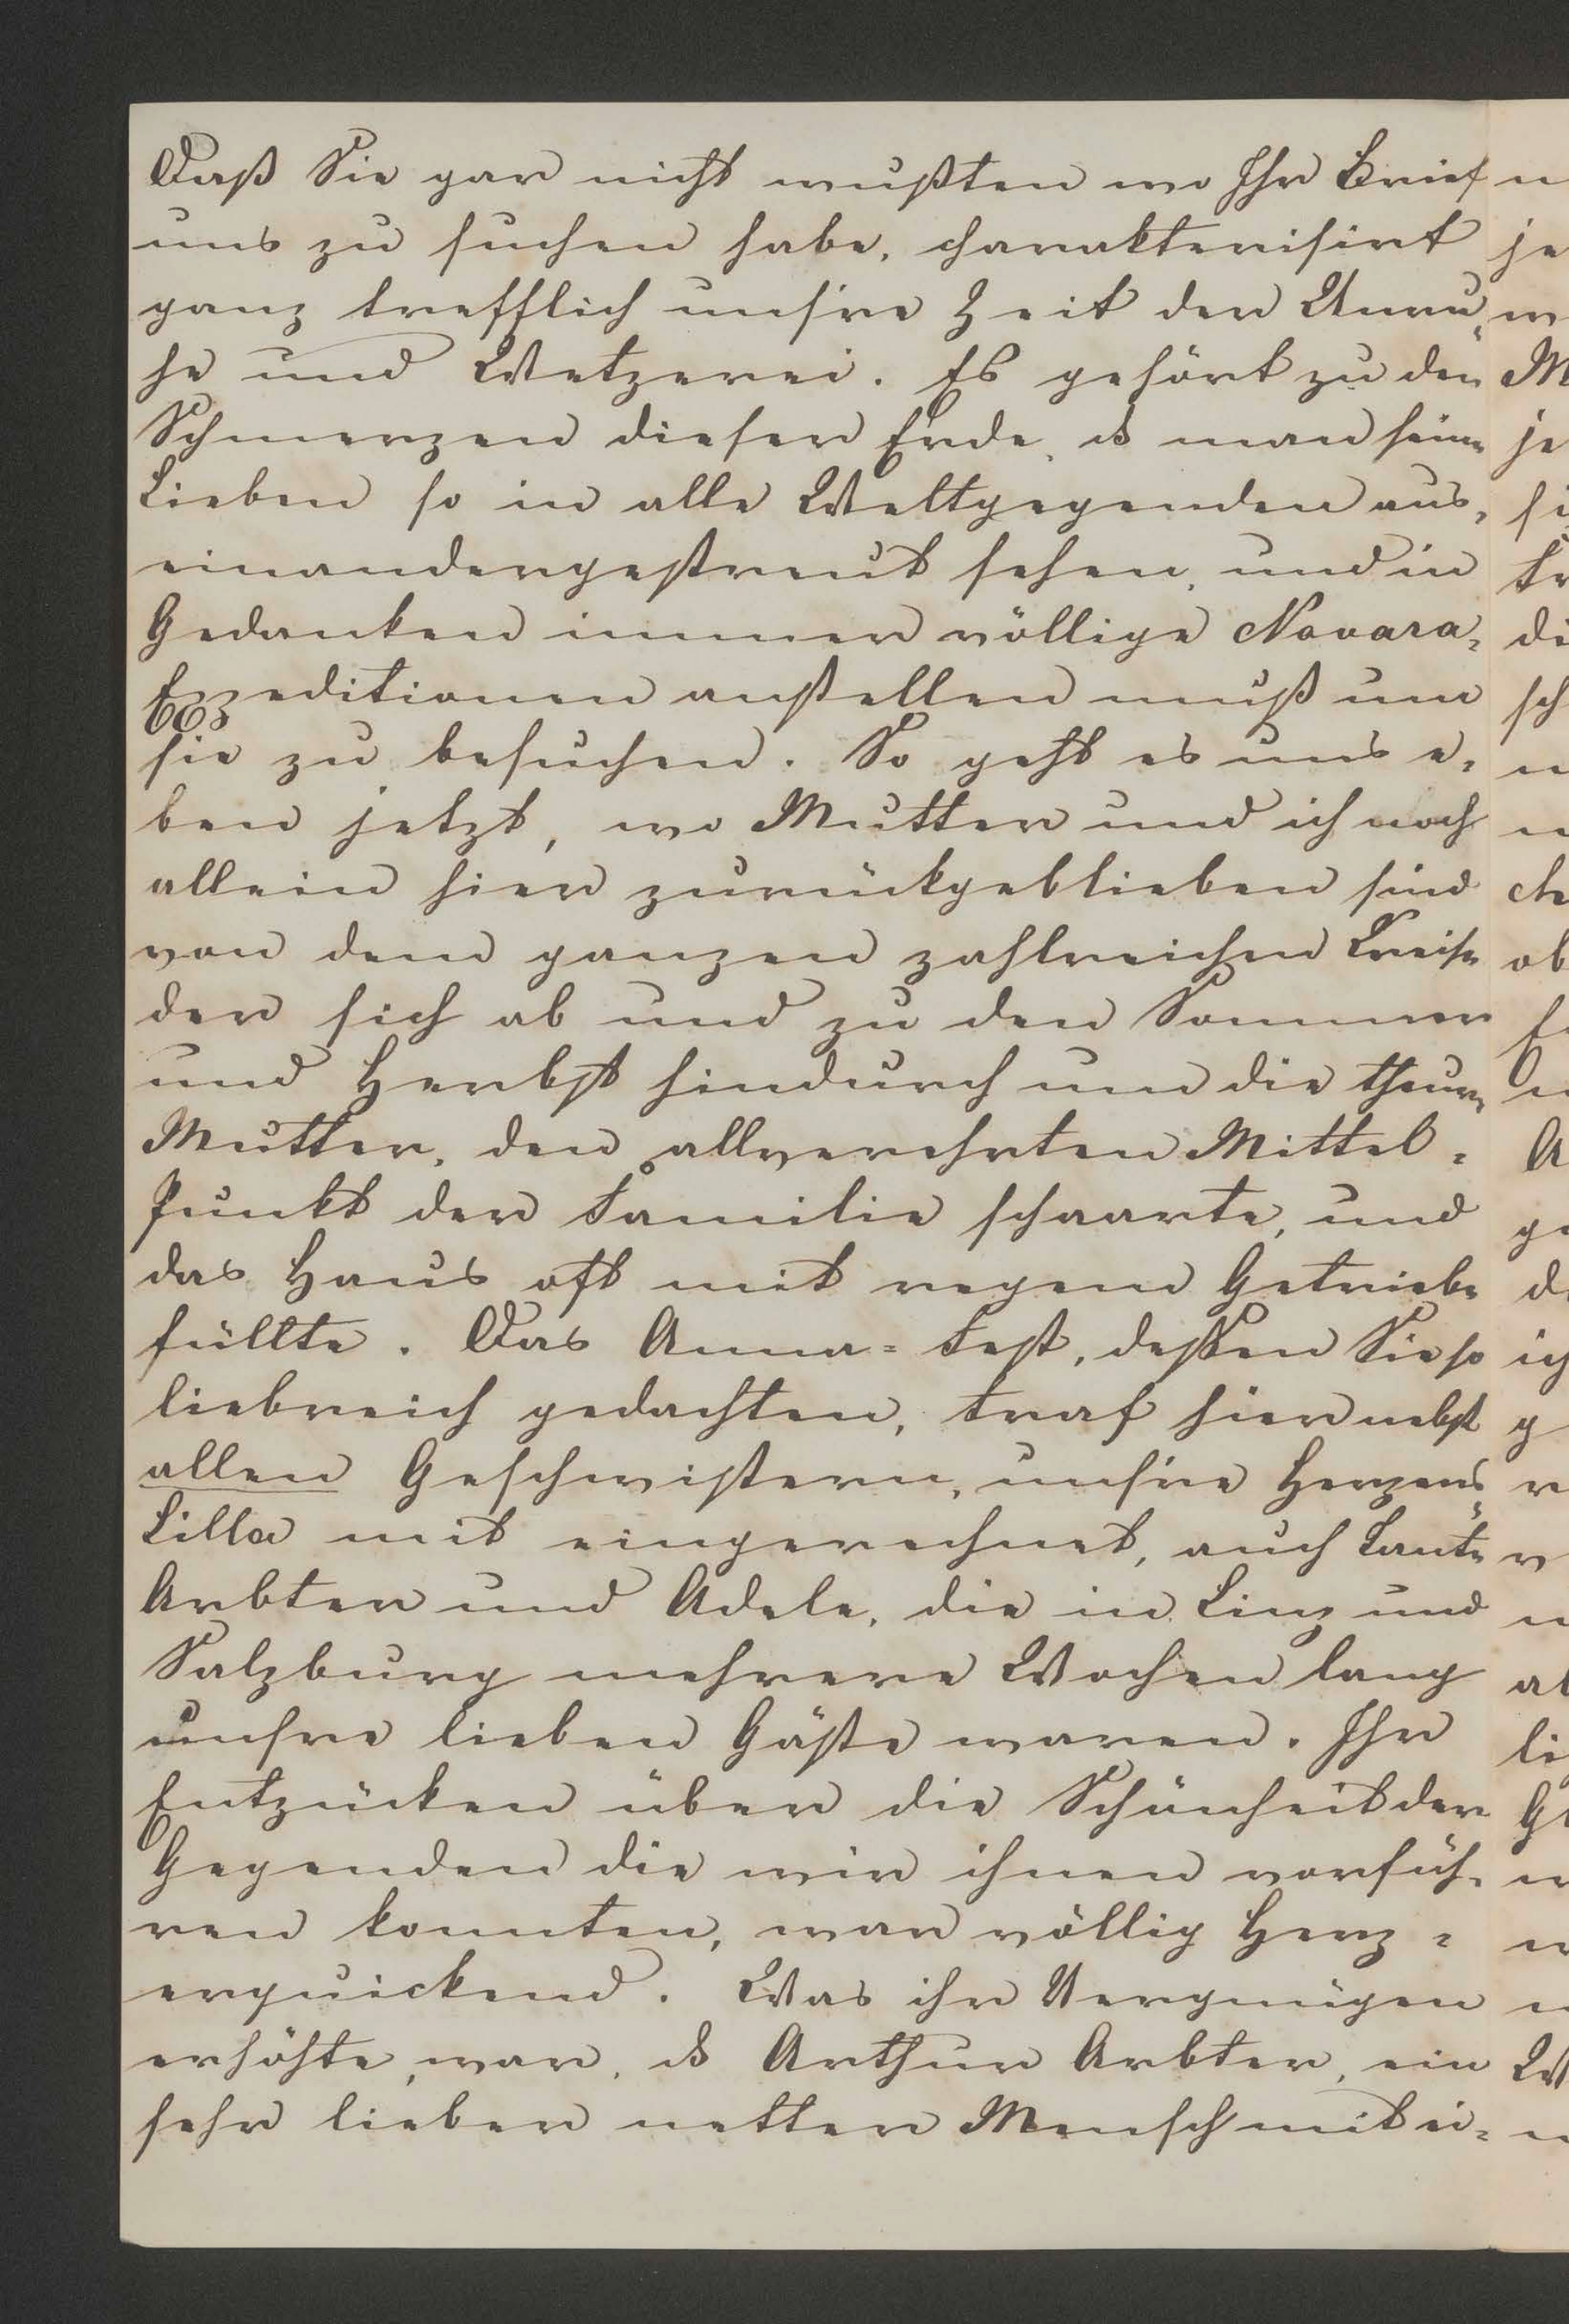 Daß Sie gar nicht wußten wo Ihr Brief
uns zu suchen habe, charakterisirt
ganz trefflich unsre Zeit der Unru„
he und Wetzerei. Es gehört zu den
Schmerzen dieser Erde, ds man seine
Lieben so in alle Weltgegenden aus„
einandergestreut sehen, und in
Gedanken immer völlige Novara„
Expeditionen anstellen muß um
sie zu besuchen. So geht es uns e„
ben jetzt, wo Mutter und ich noch
allein hier zurückgeblieben sind
von dem ganzen zahlreichen Kreise
der sich ab und zu den Sommer
und Herbst hindurch um die theure
Mutter, den allverehrten Mittel=
Punkt der Familie schaarte, und
das Haus oft mit regem Getriebe
füllte. Das Anna=Fest, dessen Sie so
liebreich gedachten, traf hier nebst
allen Geschwistern, unsre Herzens„
Lilla mit eingerechnet, auch Tante
Arbter und Adele, die in Linz und
Salzburg mehrere Wochen lang
unsre lieben Gäste waren. Ihr
Entzücken über die Schönheit der
Gegenden die wir ihnen vorfüh„
ren konnten, war völlig Herz=
erquickend. Was ihr Vergnügen
erhöhte, war, ds Arthur Arbter, ein
sehr lieber netter Mensch mit ei=